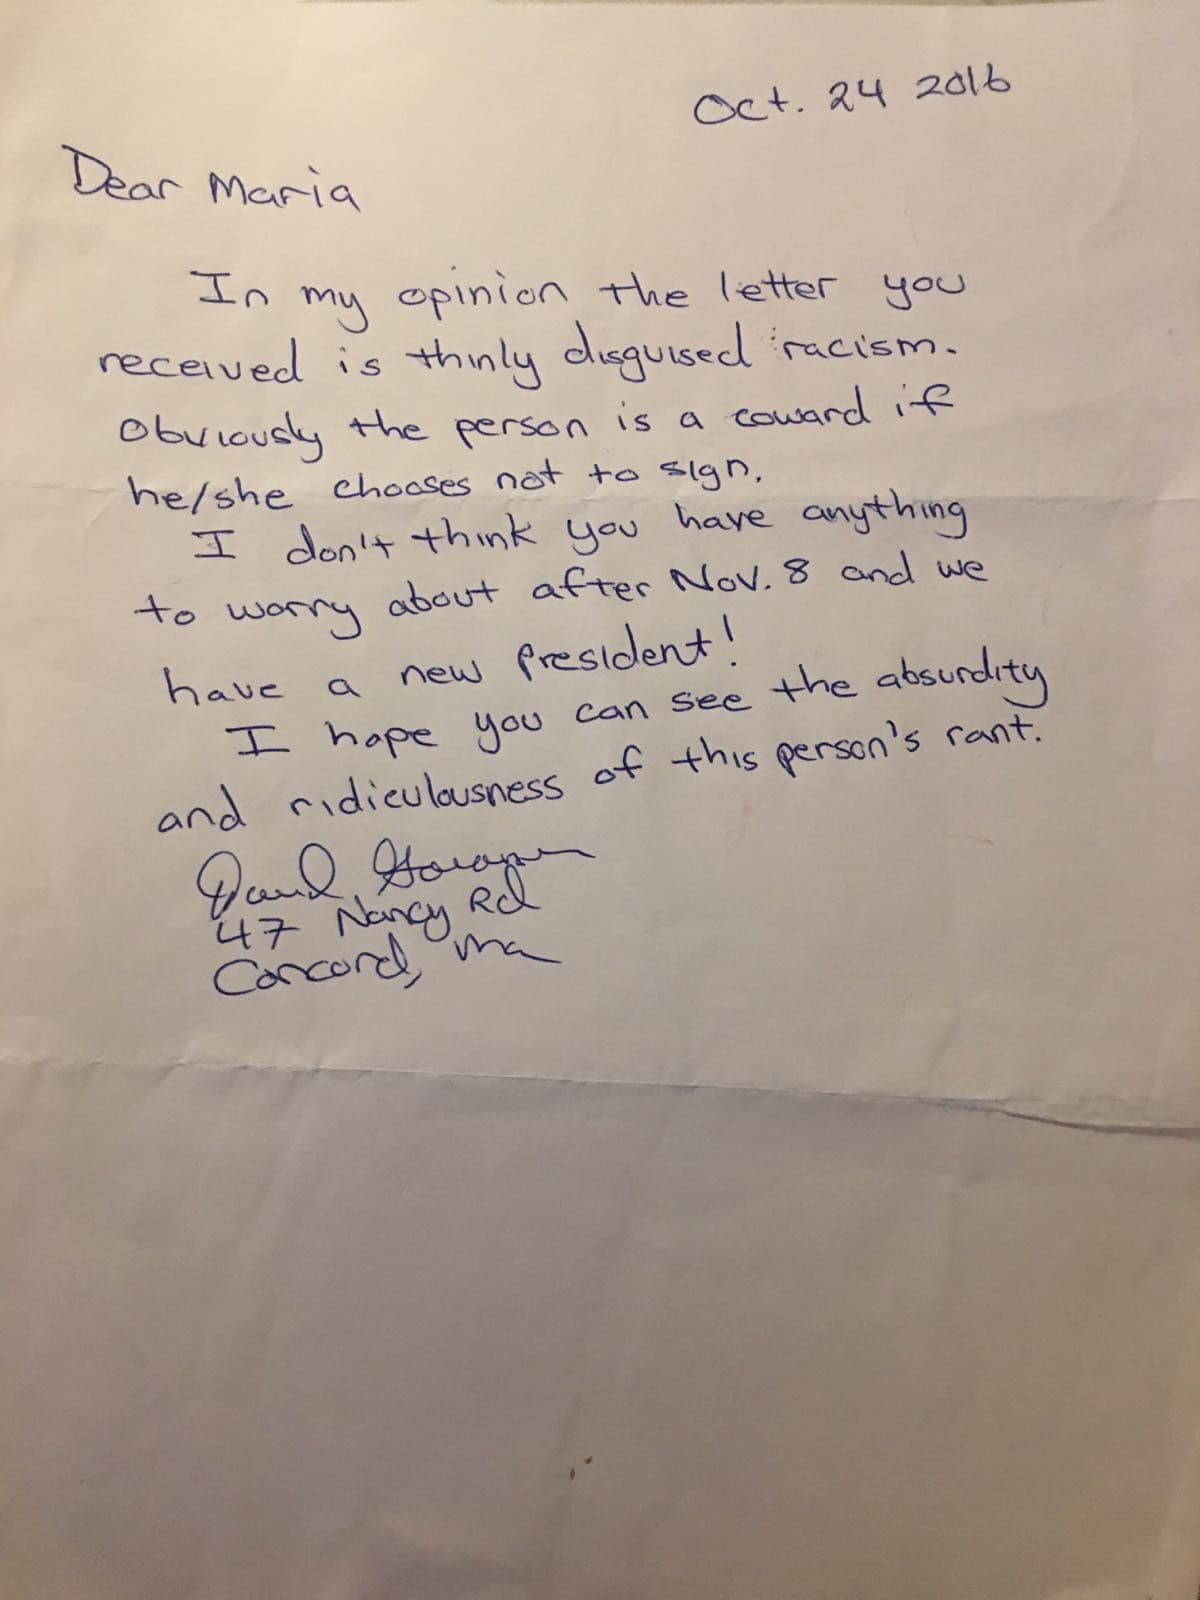 Oct. 24 2016
Dear Maria
In my opinion the letter you
received is thinly disguised racism.
Obviously the person is a coward if
he/she chooses not to sign.
I don't think you have anything
to worry about after Nov. 8 and we
have a new President!
I hope you can see the absurdity
and ridiculousness of this person's rant.
David
47 Nancy Rd
Concord, Ma